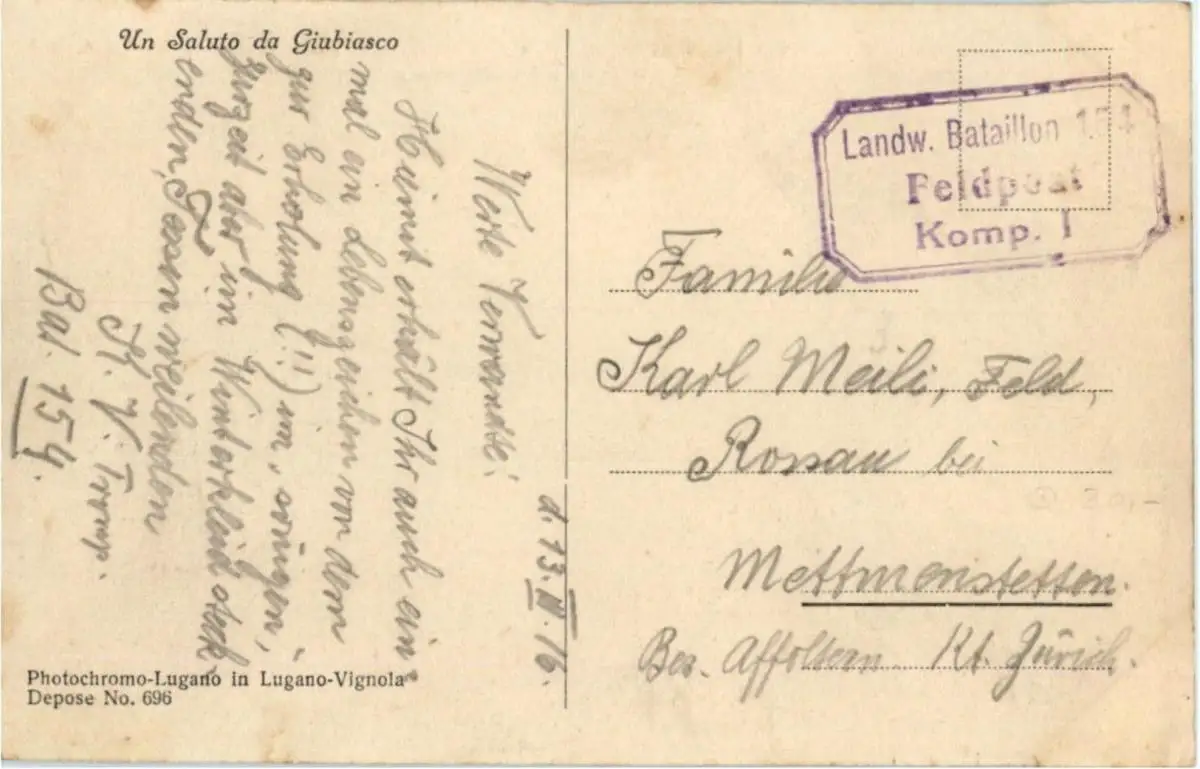 Un Saluto da Giubiasco
d. 13. III. 16.
Werte Verwandte!
Hiemit erhält Ihr auch ein-
mal ein Lebenszeichen von dem
zur Erholung (!!) im, sonnigen,
zurzeit aber im Winterkleid steck-
enden, Tessin weilenden
K. V. Tromp.
Bat. 154.
Photochromo-Lugano in Lugano-Vignola
Depose No. 696
Landw. Bataillon 154
Feldpost
Komp. I
Familie
Karl Meili, Feld,
Rossau bei
Mettmenstetten.
Bez. Affoltern Kt. Zürich.